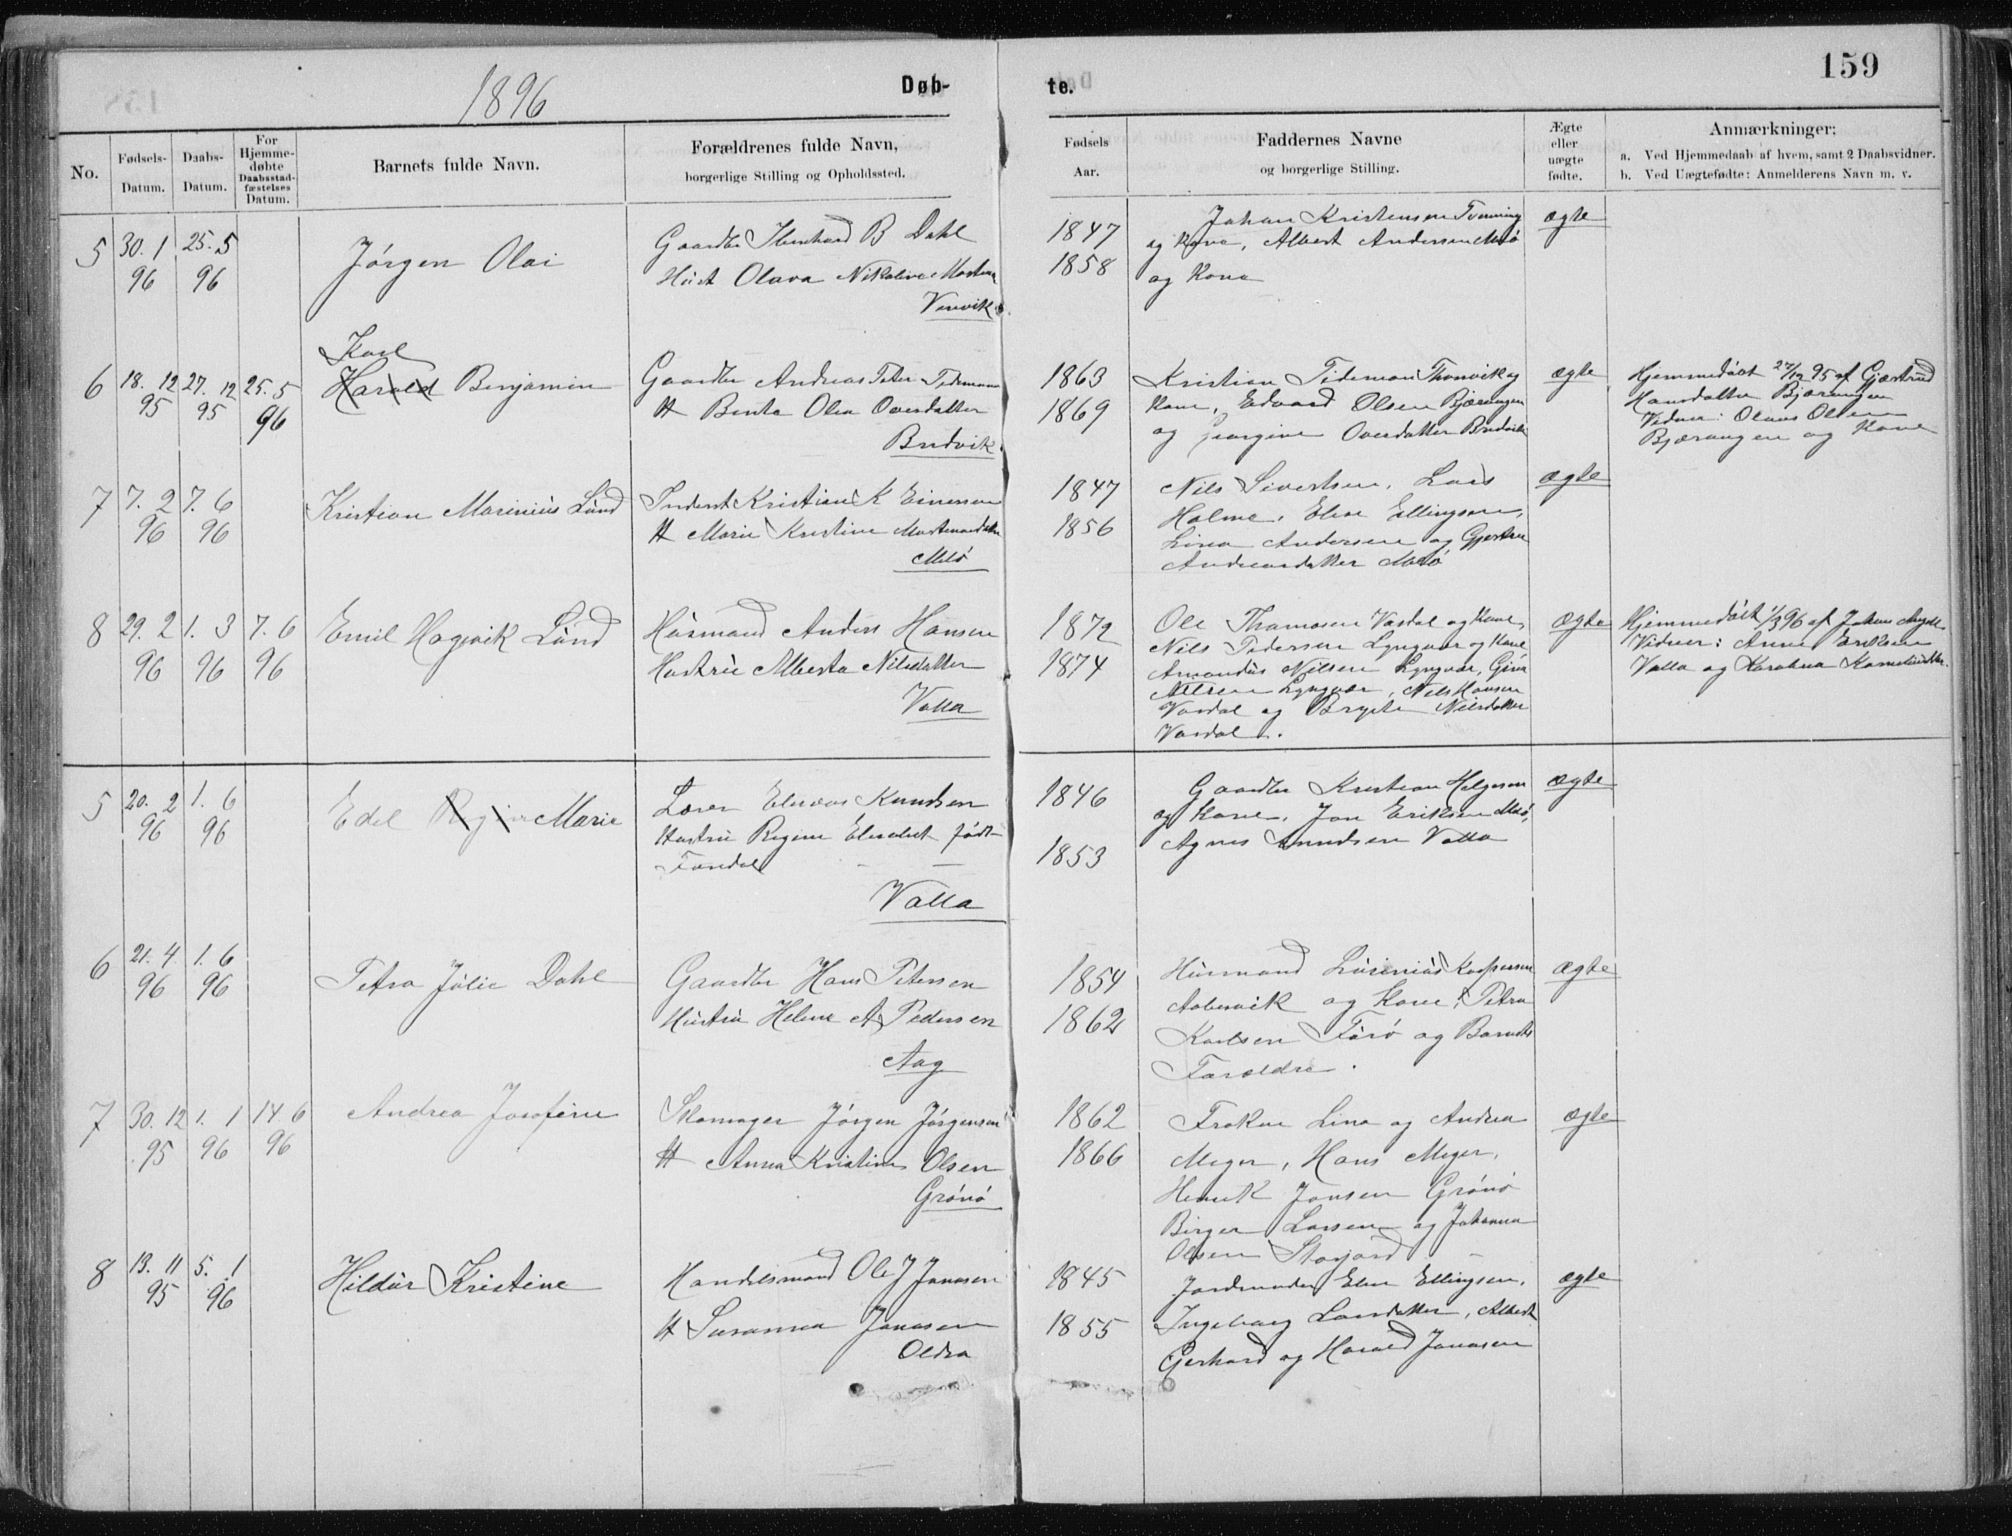 159
1896
Døb-
te.
No.
Fødsels-
Datum.
Daabs-
Datum.
For
Hjemme-
døbte
Daabsstad-
fæstelses
Datum.
Barnets fulde Navn.
Forældrenes fulde Navn,
borgerlige Stilling og Opholdssted.
Fødsels
Aar.
Faddernes Navne
og borgerlige Stilling.
Ægte
eller
uægte
fødte.
Anmærkninger:
a. Ved Hjemmedaab af hvem, samt 2 Daabsvidner.
b. Ved Uægtefødte: Anmelderens Navn m. v.
5
30. 1
96
25. 5
96
Jörgen Olai
Gaardbr B Dahl
Hust Olava Nikoline
1847
1858
Johan Kristensen
og Kone, Albert Andersen Mesö
og Kone
ægte
6
18. 12
95
27. 12
95
25. 5
96
Karl
Harald Benjamin
Gaardbr Andreas Peter
H Benta Olea
Bredvik
1863
1869
Kristian Tideman
Kone, Edvard Olsen Bjærangen
og Georgine
ægte
Hjemmedöbt 27/12 95 af Gjærtrud
Hansdatter Bjærangen
Vidner: Olaus Olsen
Bjærangen og Kone
7
7. 2
96
7. 6
96
Kristian Marinius Lund
Inderst Kristian K Einersen
H Marie Kristine
Mesö
1847
1856
Nils Sivertsen, Lars
Holme, Elen Ellingsen,
Lina Andersen og
Andreasdatter Mesö
ægte
8
29. 2
96
1. 3
96
7. 6
96
Emil Hagevik Lund
Husmand Anders Hansen
Hustru Alberta Nilsdatter
Valla
1872
1874
Ole Thomasen Vasdal og Kone,
Nils Pedersen Lyngvær og Kone
Amandus Nilsen Lyngvær,
Nilsen Lyngvær, Nils Hansen
Vasdal og Nilsdatter
Vasdal.
ægte
Hjemmedöbt 1/3 96 af Johan
Vidner: Anne Eriksen
Valla og
5
20. 2
96
1. 6
96
Edel Marie
Lærer Knudsen
Hustru Regine Elisabet født
Valla
1846
1853
Gaardbr Kristian Helgesen
og Kone, Jon Eriksen Mesö,
Agnes Knudsen Valla
ægte
6
21. 4
96
1. 6
96
Petra Julie Dahl
Gaardbr Hans Petersen
Hustru Helene A Pedersen
Aag
1854
1862
Husmand Kaspersen
og Kone, Petra
Karlsen Farö og Barnets
Forældre.
ægte
7
30. 12
95
1. 1
96
14. 6
96
Andrea Josefine
Skomager Jörgen Jörgensen
H Anna Kristine Olsen
Grönö
1862
1866
Frøken Lina og Andrea
Meyer, Hans Meyer,
Henrik Jansen Grönö
Birger Larsen og Johanna
Olsen Storjord
ægte
8
13. 11
95
5. 1
96
Hildur Kristine
Handelsmand Ole J Jonasen
H Susanna Jonasen
Oldra
1845
1855
Jordmoder Elen Ellingsen,
Ingeborg Larsdatter, Albert
Gerhard og Harald Jonasen
ægte